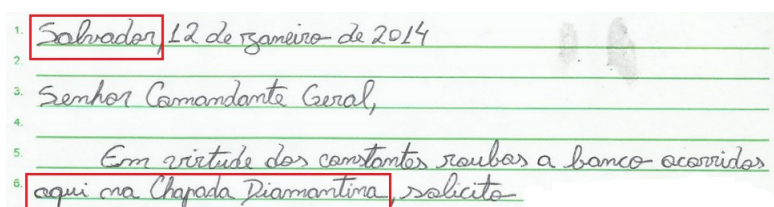 1. Salvador, 12 de janeiro de 2014
2.
3. Senhor Comandante Geral,
4.
5. Em virtude dos constantes roubos a banco ocorridos
6. aqui na Chapada Diamantina, solicito